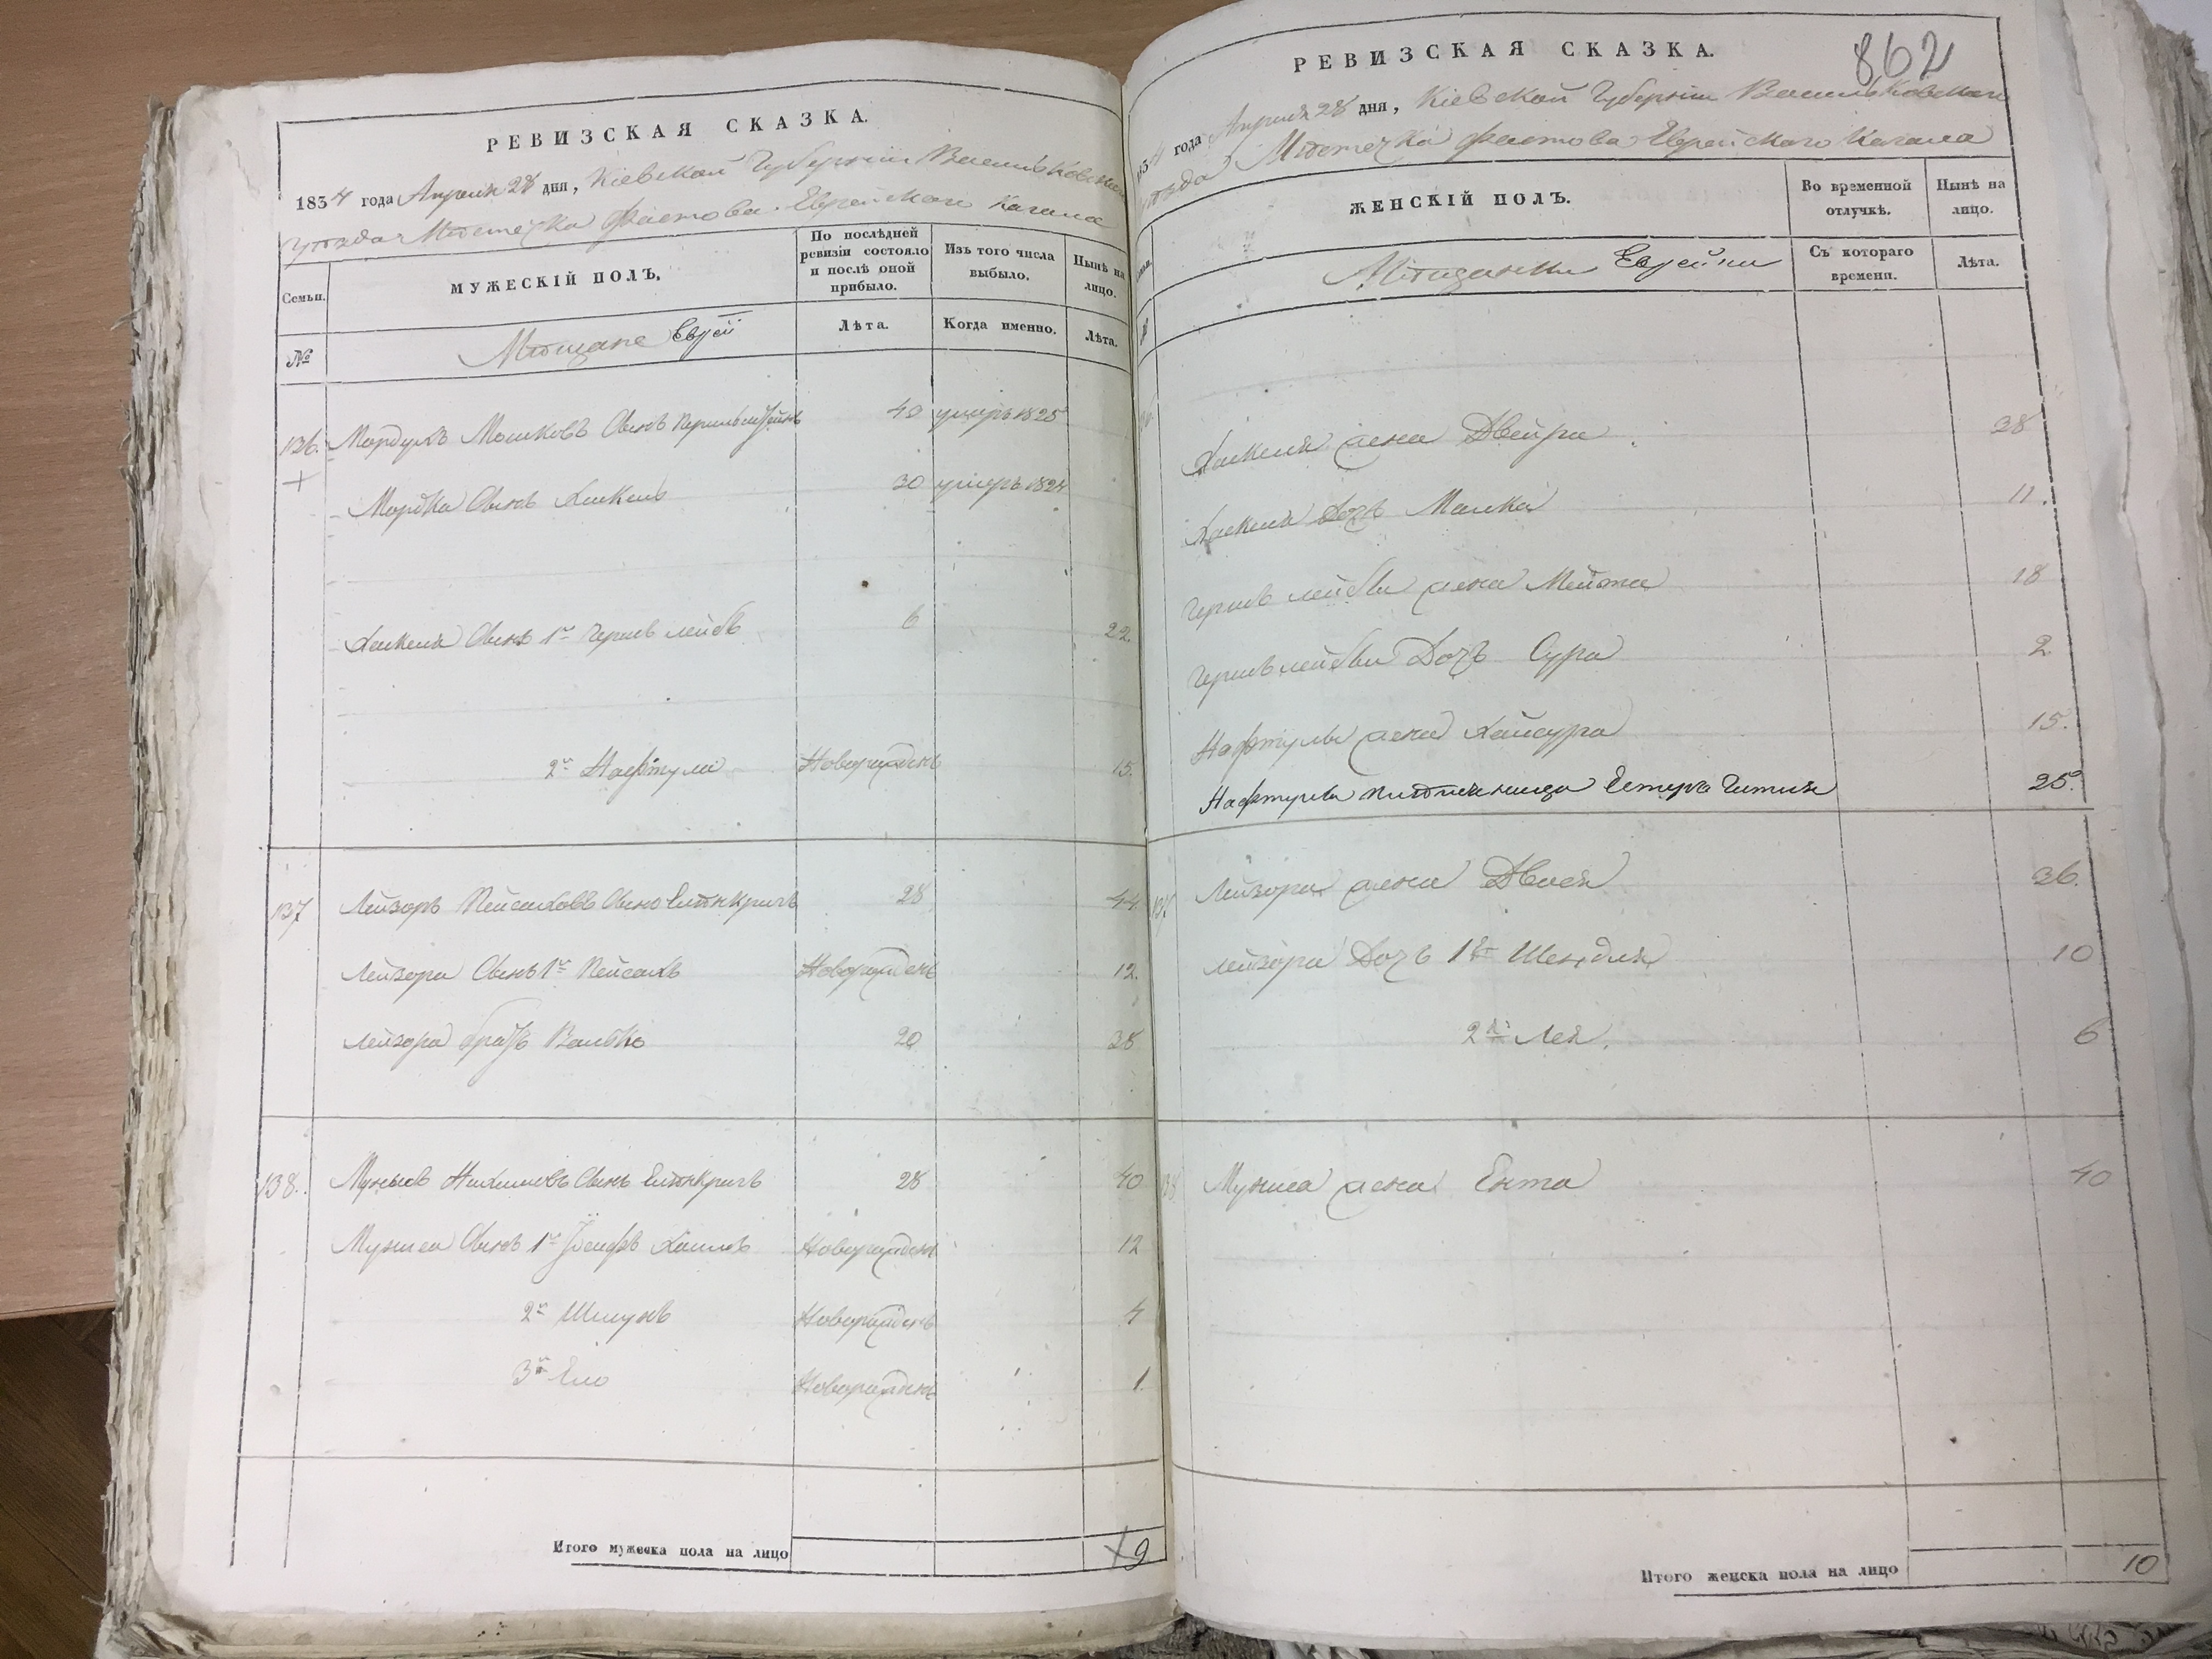 РЕВИЗСКАЯ СКАЗКА.
1834 года Апреля 28 дня, Кіевской Губерніи Васильковскаго
уѣзда Мѣстечка Фастова Еврейскаго Кагала
Семьи.
МУЖЕСКІЙ ПОЛЪ.
По послѣдней ревизіи состояло и послѣ оной прибыло.
Изъ того числа выбыло.
Нынѣ на лицо.
№
Мѣщане Евреи
Лѣта.
Когда именно.
Лѣта.
136. Мордухъ Мошковъ Сынъ 40 умеръ 1825
Мордка Сынъ Хаскель 30 умеръ 1824
Хаскеля Сынъ 1й Гершъ лейбъ 6 22.
2й Нафтули Новорожденъ 15.
137 Лейзоръ Пейсаховъ Сынъ 28 44
Лейзора Сынъ 1й Пейсахъ Новорожденъ 12.
Лейзора братъ Волько 20 28
138. Сынъ 28 40
Сынъ 1й Хаимъ Новорожденъ 12
2й Шмунъ Новорожденъ 4
3й Новорожденъ 1
Итого мужеска пола на лицо 9
862
РЕВИЗСКАЯ СКАЗКА.
1834 года Апреля 28 дня, Кіевской Губерніи Васильковскаго
уѣзда Мѣстечка Фастова Еврейскаго Кагала
ЖЕНСКІЙ ПОЛЪ.
Во временной отлучкѣ.
Нынѣ на лицо.
Мѣщанки Еврейки
Съ котораго времени.
Лѣта.
Хаскеля жена Двейра 38
Хаскеля Дочь Малка 11.
Гершъ лейбы жена Мейта 18
Гершъ лейбы Дочь Сура 2
Нафтулы жена Хайсура 15.
Нафтулы Естеръ Гитля 25
137 Лейзора жена Двося 36.
Лейзора Дочь 1я Шендля 10
2я Лея. 6
138 жена Ента 40
Итого женска пола на лицо 10